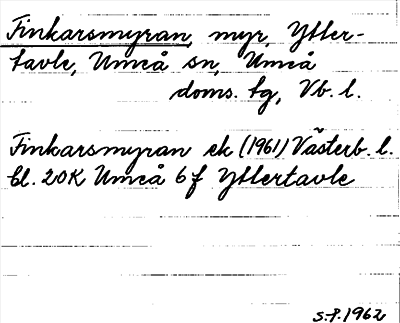 Finkarsmyran, myr, Ytter-
tavle, Umeå sn, Umeå
doms. tg, Vb. l.
Finkarsmyran ek (1961) Västerb. l.
bl. 20K Umeå 6 f Yttertavle
S.P. 1962